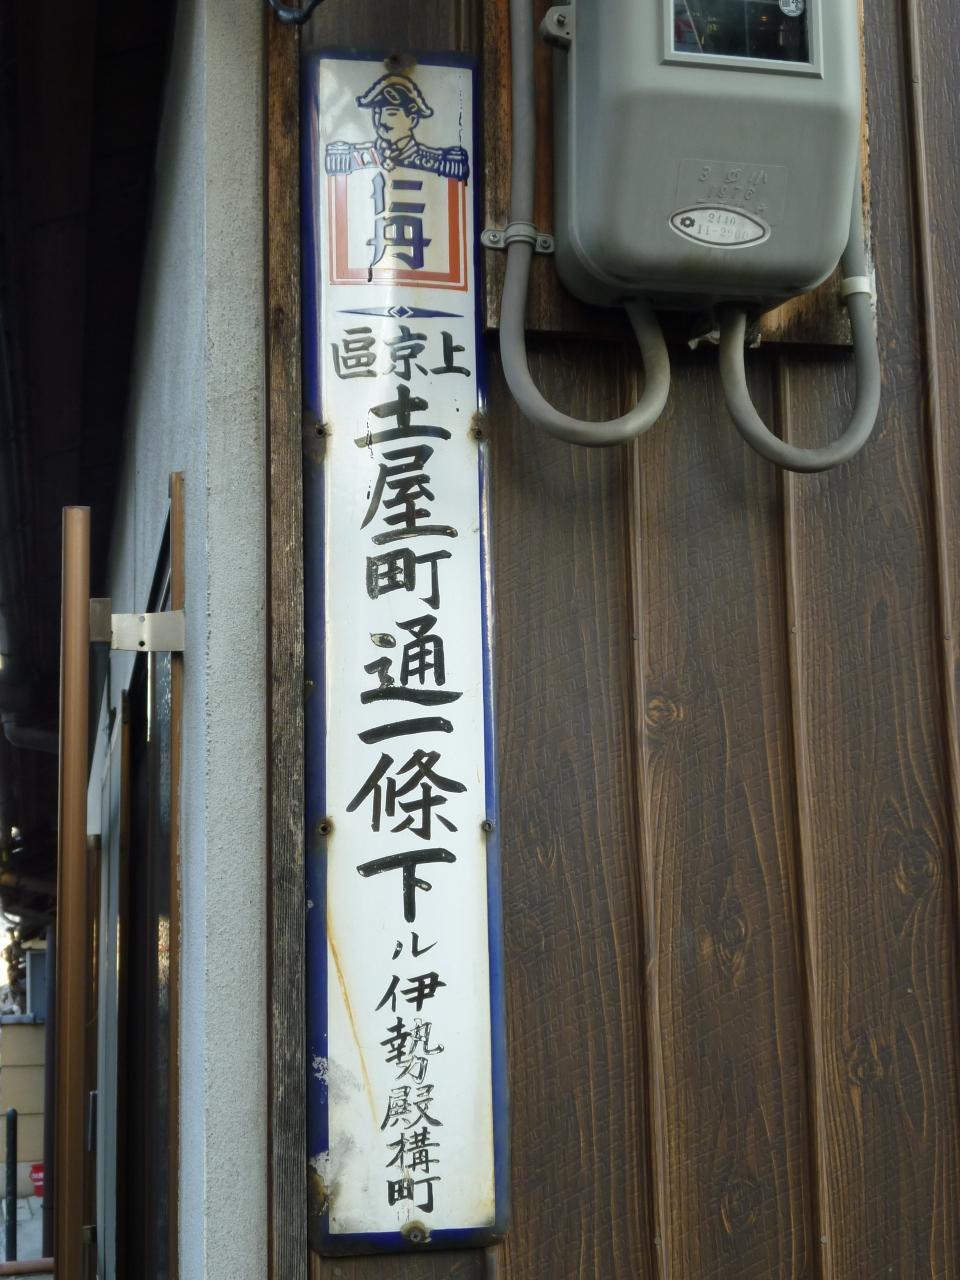 仁丹
上京區
土屋町通一條下ル伊勢殿構町
1976
2440
11-2900